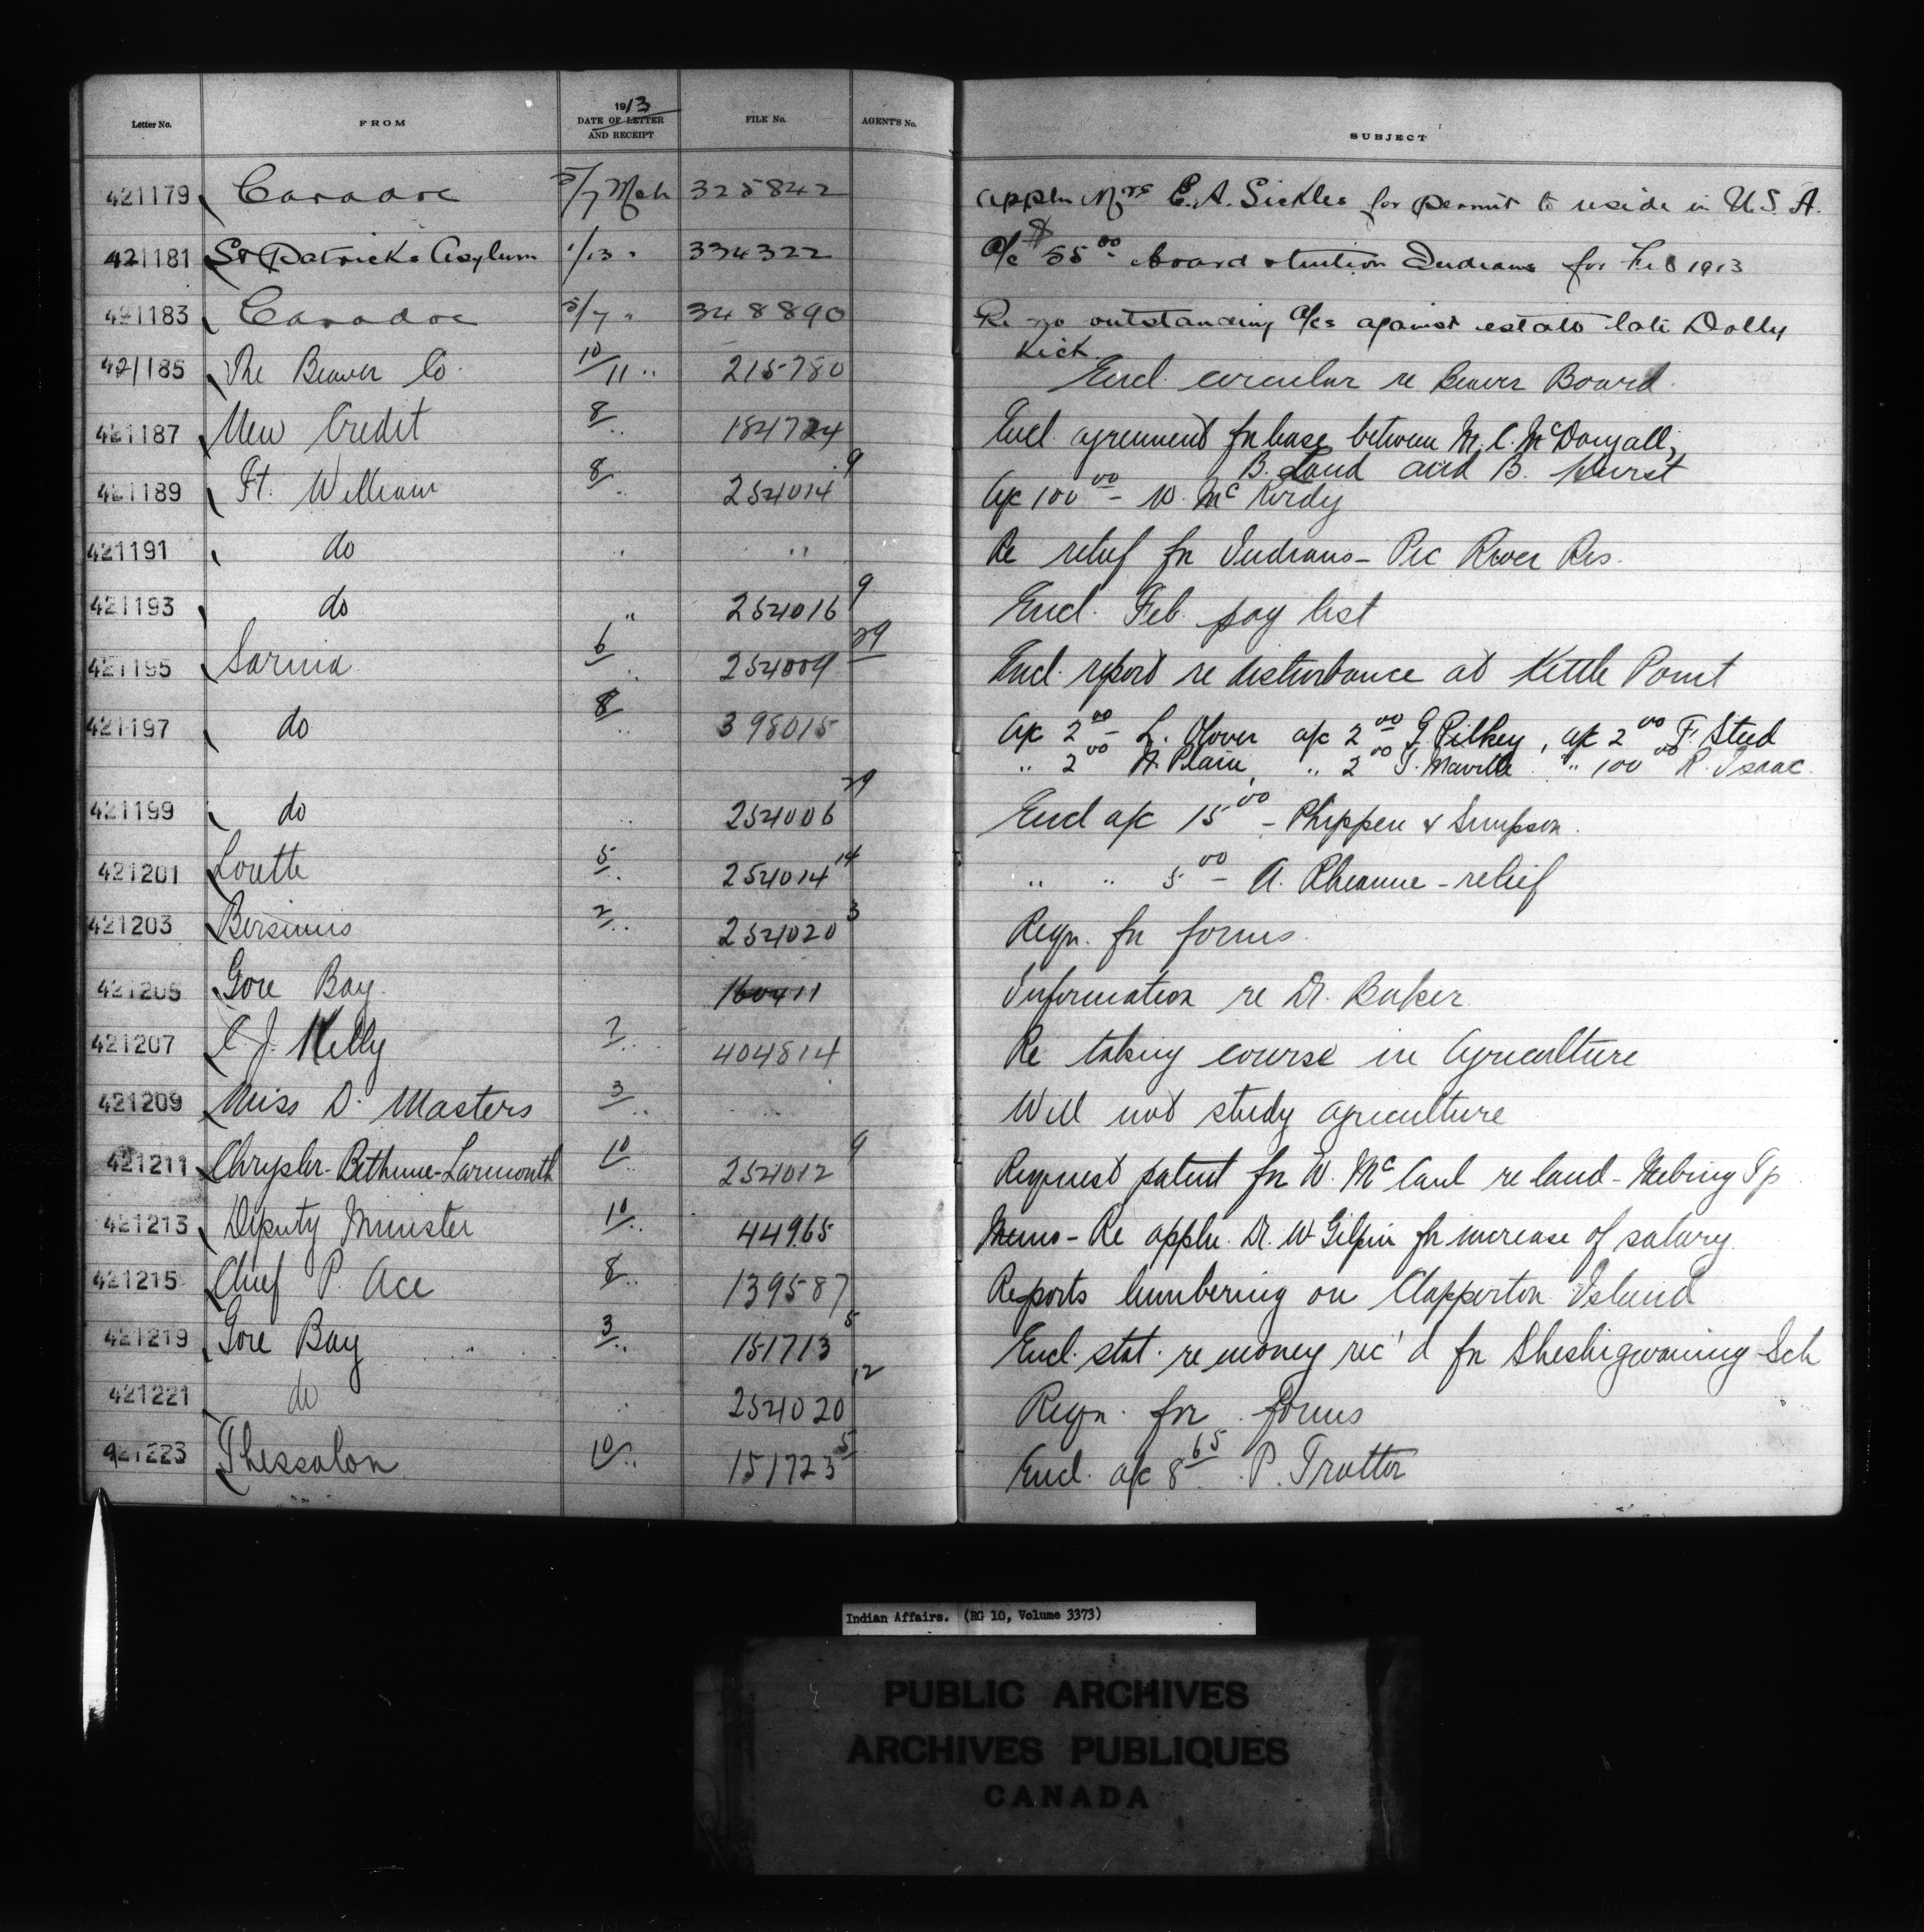 1913
Letter No. FROM DATE OF LETTER AND RECEIPT FILE No. AGENT'S No. SUBJECT
421179 Caradoc 5/7 Mch 325842 Appln Mrs E. A. Sickles for permit to reside in U.S.A.
421181 St Patricks Asylum 1/13 " 334322 a/c $55 00 board & tuition Indians for Feb 1913
421183 Caradoc 5/7 " 348890 Re no outstanding a/cs against estate late Dolly
Kick
421185 The Beaver Co. 10/11 " 215780 Encl. circular re Beaver Board.
421187 New Credit 8/ " 184724 Encl. agreement fr lease between M. C. McDougall,
B. Land and B. Hurst
421189 Ft. William 8/ " 254014 9 A/c 100 00 - W. McKirdy
421191 do " " Re relief fr Indians - Pic River Res.
421193 do " 254016 9 Encl. Feb. pay list
421195 Sarnia 6/ " 254009 29 Encl. report re disturbance at Kettle Point
421197 do 8/ " 398015 A/c 2 00 - L. a/c 2 00 G. Pilkey, a/c 2 00 F. Stud
" 2 00 A. Plain, " 2 00 T. Maville " 100 00 R. Isaac.
421199 do " 254006 29 Encl a/c 15 00 - Phippen & Simpson.
421201 Lorette 5/ " 254014 14 " " 5 00 - A. - relief
421203 Bersimis 2/ " 254020 3 Reqn. fr forms.
421205 Gore Bay. 160411 Information re Dr. Baker
421207 C. J. Kelly 7/ " 404814 Re taking course in Agriculture
421209 Miss D. Masters 3/ " " Will not study agriculture
421211 Chrysler-Bethune-Larmonth 10/ " 254012 9 Request patent fr W. McCaul re land - Neebing Tp
421213 Deputy Minister 10/ " 44965 Memo - Re appln. Dr. W Gilpin fr increase of salary.
421215 Chief P. Ace 8/ " 139587 Reports lumbering on Clapperton Island
421219 Gore Bay 3/ " 151713 5 Encl. stat. re money rec'd fr Sheshigwaning Sch
421221 do " 254020 12 Reqn. for forms
421223 Thessalon 10/ " 151723 5 Encl. a/c 8 65 P. Trotter
Indian Affairs. (RG 10, Volume 3373)
PUBLIC ARCHIVES
ARCHIVES PUBLIQUES
CANADA